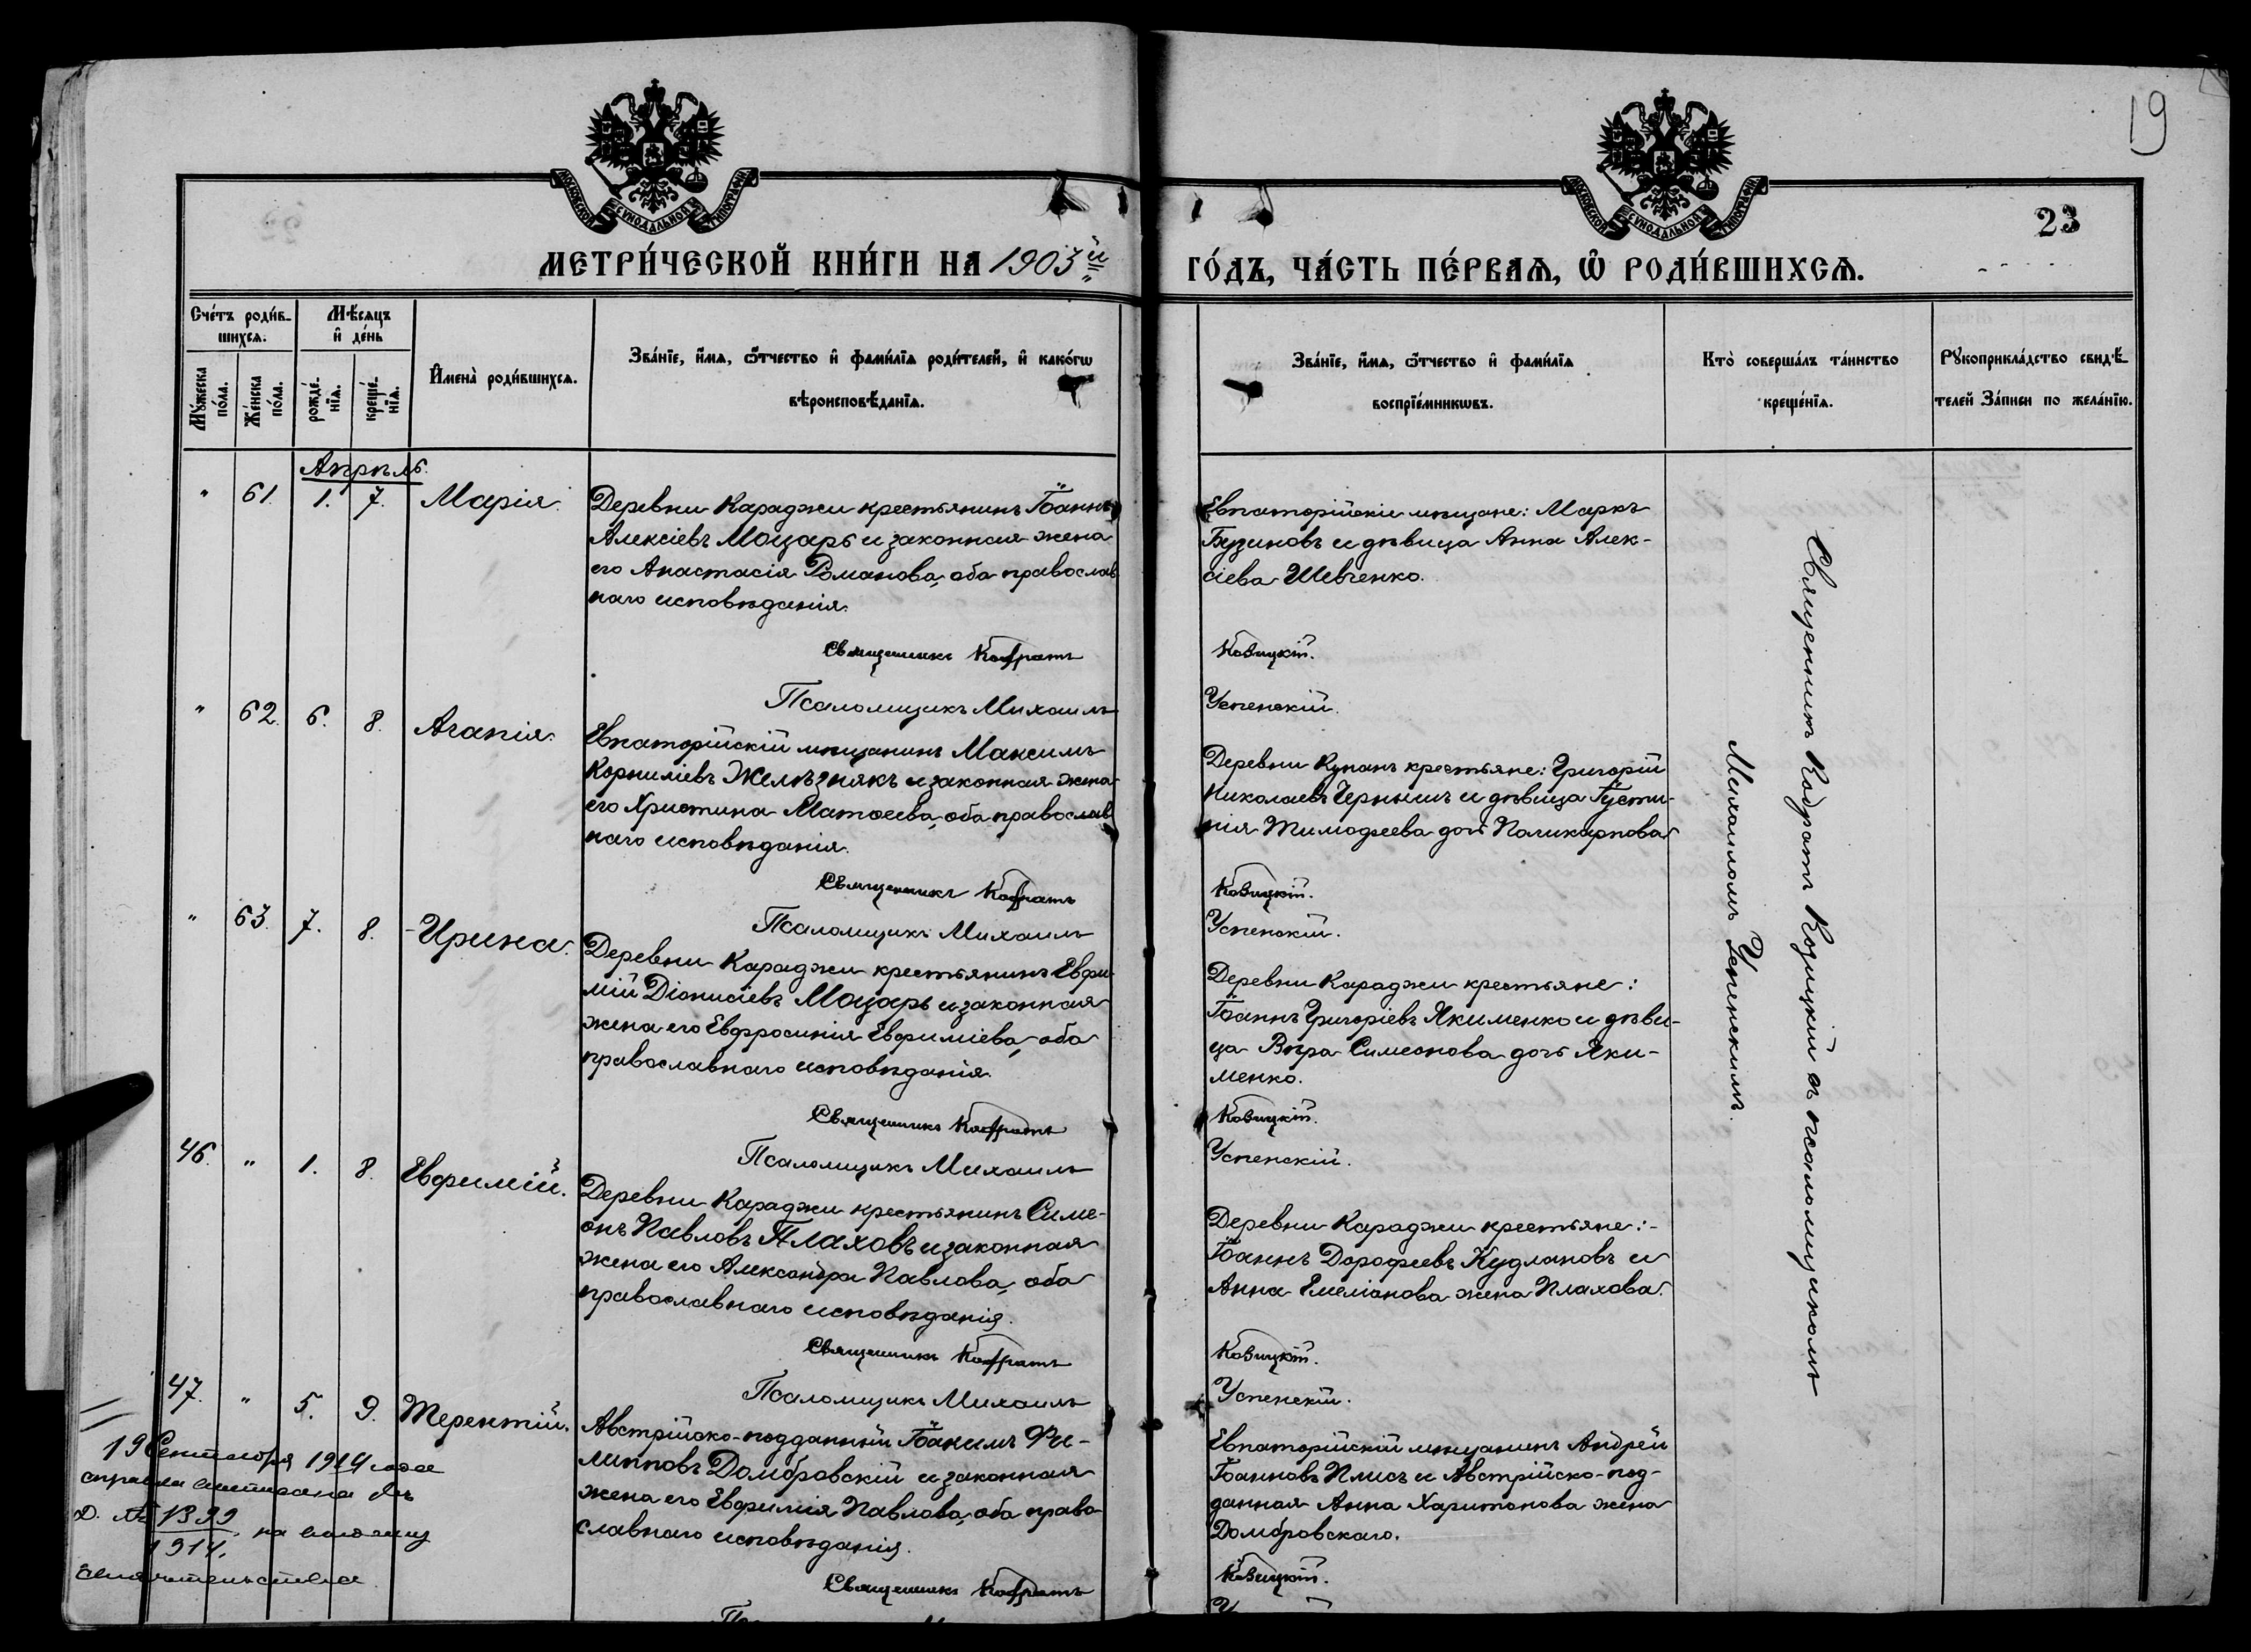 19
МОСКОВСКОЙ СУНОДАЛЬНОЙ ТИПОГРАФІИ
МОСКОВСКОЙ СУНОДАЛЬНОЙ ТИПОГРАФІИ
23
МЕТРИ́ЧЕСКОЙ КНИ́ГИ НА 1903й
ГО́ДЪ, ЧА́СТЬ ПЕ́РВАѦ, Ѡ РОДИ́ВШИХСѦ.
Сче́тъ роди́в-
шихсѧ.
Мꙋ́жеска по́ла.
Же́нска по́ла.
Мѣ́сѧцъ
и҆ де́нь
рожде́-нїѧ.
креще́-нїѧ.
И҆мена̀ роди́вшихсѧ.
Зва́нїе, и҆́мѧ, ѻ҆́тчество и҆ фами́лїѧ роди́телей, и҆ како́гѡ
вѣроисповѣ́данїѧ.
Зва́нїе, и҆́мѧ, ѻ҆́тчество и҆ фами́лїѧ
воспрїе́мникѡвъ.
Кто̀ соверша́лъ та́инство
креще́нїѧ.
Рꙋкоприкла́дство свидѣ́-
телей За́писи по жела́нїю.
Апрѣль.
" 61. 1. 7. Марія.
Деревни Караджи крестьянинъ Іоаннъ
Алексіевъ Моцарь и законная жена
его Анастасія Романова, оба православ
наго исповѣданія.
Священникъ Кодратъ
Псаломщикъ Михаилъ
Евпаторійскіе мѣщане: Маркъ
Бузиновъ и дѣвица Анна Алек-
сіева Шевченко.
Козицкій.
Успенскій.
" 62. 6. 8. Агапія.
Евпаторійскій мѣщанинъ Максимъ
Корниліевъ Желѣзнякъ и законная жена
его Христина Матѳеева, оба православ
наго исповѣданія.
Священникъ Кодратъ
Псаломщикъ Михаилъ
Деревни Кунанъ крестьяне: Григорій
Николаевъ Чернышъ и дѣвица Іусти-
нія Тимофеева дочь Поликарпова
Козицкій.
Успенскій.
" 63. 7. 8. Ирина.
Деревни Караджи крестьянинъ Евфи-
мій Діонисіевъ Моцарь и законная
жена его Евфросинія Евфиміева, оба
православнаго исповѣданія.
Священникъ Кодратъ
Псаломщикъ Михаилъ
Деревни Караджи крестьяне:
Іоаннъ Григоріевъ Якименко и дѣви-
ца Вѣра Симеонова дочь Яки-
менко.
Козицкій.
Успенскій.
46. " 1. 8. Евфимій.
Деревни Караджи крестьянинъ Симе-
онъ Павловъ Плаховъ и законная
жена его Александра Павлова, оба
православнаго исповѣданія.
Священникъ Кодратъ
Псаломщикъ Михаилъ
Деревни Караджи крестьяне:-
Іоаннъ Дорофеевъ Кудлановъ и
Анна Емеліанова жена Плахова.
Козицкій.
Успенскій.
47. " 5. 9. Терентій.
Австрійско-подданный Іоакимъ Фи-
липповъ Домбровскій и законная
жена его Евфимія Павлова, оба право
славнаго исповѣданія.
Священникъ Кодратъ
Евпаторійскій мѣщанинъ Андрей
Іоанновъ Плисъ и Австрійско-под-
данная Анна Харитонова жена
Домбровскаго.
Козицкій.
Священникъ Кодратъ Козицкій съ псаломщикомъ
Михаиломъ Успенскимъ.
19 Сентября 1914 года
1399
1914.